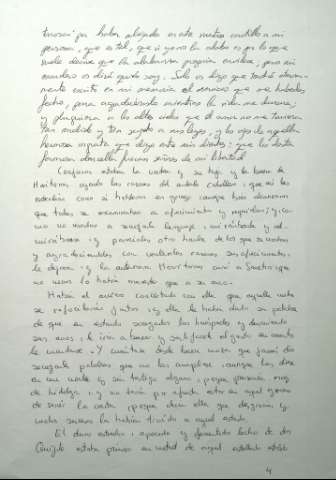 fermosa señora, por haber alojado en este vuestro castillo a mi
persona, que es tal, que si yo no la alabo es por lo que
suele decirse que la alabanza propia envilece; pero mi
escudero os dirá quién soy. Solo os digo que tendré eterna-
mente escrito en mi memoria el servicio que me habedes
fecho, para agradecéroslo mientras la vida me durare;
y pluguiera a los altos cielos que el amor no me tuviera
tan rendido y tan sujeto a sus leyes, y los ojos de aquella
hermosa ingrata que digo entre mis dientes: que los desta
fermosa doncella fueran señores de mi libertad
Confusas estaban la ventera y su hija y la buena de
Maritornes oyendo las razones del andante caballero, que así las
entendían como si hablara en griego aunque bien alcanzaron
que todas se encaminaban a ofrecimiento y requiebros; y, co-
mo no usadas a semejante lenguaje, mirábanle y ad-
mirábanse, y parecíales otro hombre de los que se usaban;
y agradeciéndole con venteriles razones sus ofrecimientos,
le dejaron, y la asturiana Maritornes curó a Sancho, que
no menos lo había menester que su amo.
Había el arriero concertado con ella que aquella noche
se refocilarían juntos, y ella le había dado su palabra
de que, en estando sosegados los huéspedes y durmiendo
sus amos, le iría a buscar y satisfacerle el gusto en cuanto
le mandase. Y cuéntase desta buena moza que jamás dio
semejantes palabras que no las cumpliese, aunque las diese
en un monte y sin testigo alguno, porque presumía muy
de hidalga, y no tenía por afrenta estar en aquel ejercicio
de servir la venta, porque decía ella que desgracias y
malos sucesos la habían traído a aquel estado.
El duro, estrecho, apocado y fementido lecho de don
Quijote estaba primero en mitad de aquel estrellado establo
4